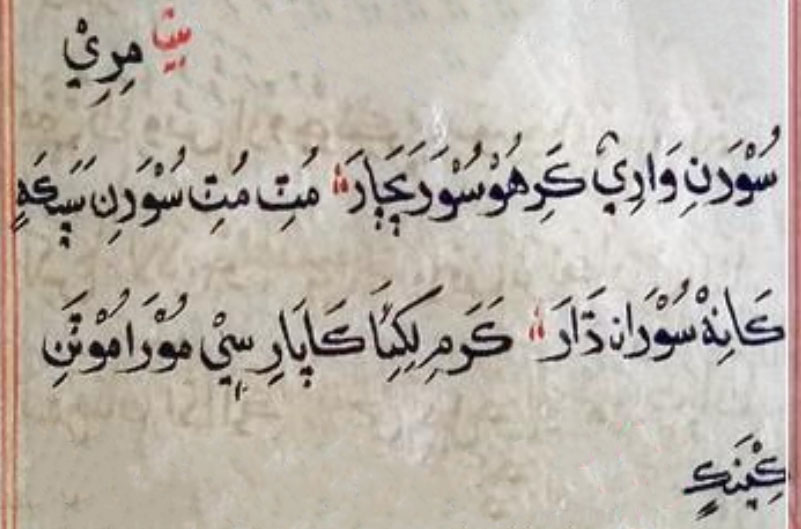 بيت مِرِيْ
سُوْرَنِ وَارِيْ كَرِ هُوْ سُوْرَ بَچَارَ مُتِ مُتِ سُوْرَنِ سَڀِكَهٍ
كَانِهْ سُوْرَانہ ڌَارَ كَرَمِ لِكِئَا كَاپَارِ سٖيْ مُوْرَا مُوْٽَنِ
كِيْنَكٍ